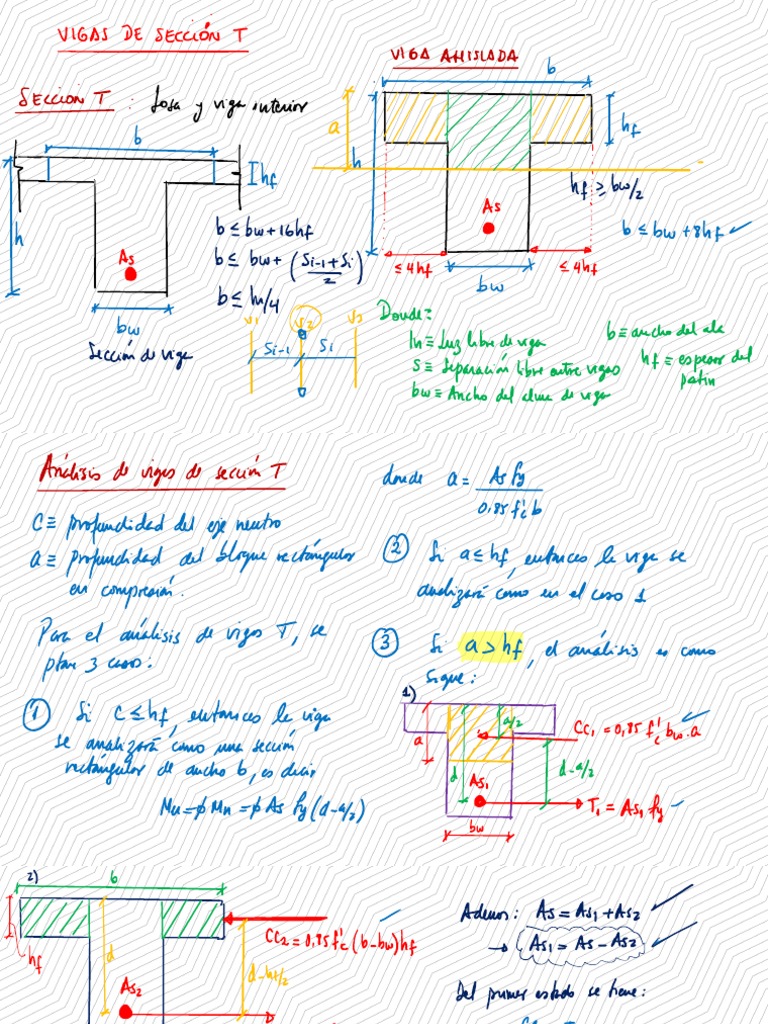 VIGAS DE SECCIÓN T
SECCION T : Losa y viga interior
b
hf
h
As
bw
Sección de viga
b ≤ bw + 16hf
b ≤ bw + (Si-1 + Si / 2)
b ≤ ln/4
V1 V2 V3
Si-1 Si
VIGA AHISLADA
b
a
h
hf
As
hf ≥ bw/2
b ≤ bw + 8hf ✓
≤ 4hf
≤ 4hf
bw
Donde:
ln ≡ Luz libre de viga
S ≡ Separación libre entre vigas
bw ≡ Ancho del alma de viga
b ≡ ancho del ala
hf ≡ espesor del
patin
Análisis de vigas de sección T
C ≡ profundidad del eje neutro
a ≡ profundidad del bloque rectángular
en compresión.
Para el análisis de vigas T, se
plan 3 casos:
① Si C ≤ hf, entonces la viga
se analizará como una sección
rectángular de ancho b, es decir
Mu = φ Mn = φ As fy (d - a/2)
donde a = As fy / 0,85 f'c b
② Si a ≤ hf, entonces la viga se
analizará como en el caso 1
③ Si a > hf, el análisis es como
sigue:
1)
a
d
a/2
CC1 = 0,85 f'c bw . a ✓
d - a/2
As1
T1 = As1 fy ✓
bw
2)
b
hf
d
As2
CC2 = 0,85 f'c (b - bw) hf ✓
d - hf/2
Ademas: As = As1 + As2 ✓
→ As1 = As - As2 ✓
Del primer estado se tiene: